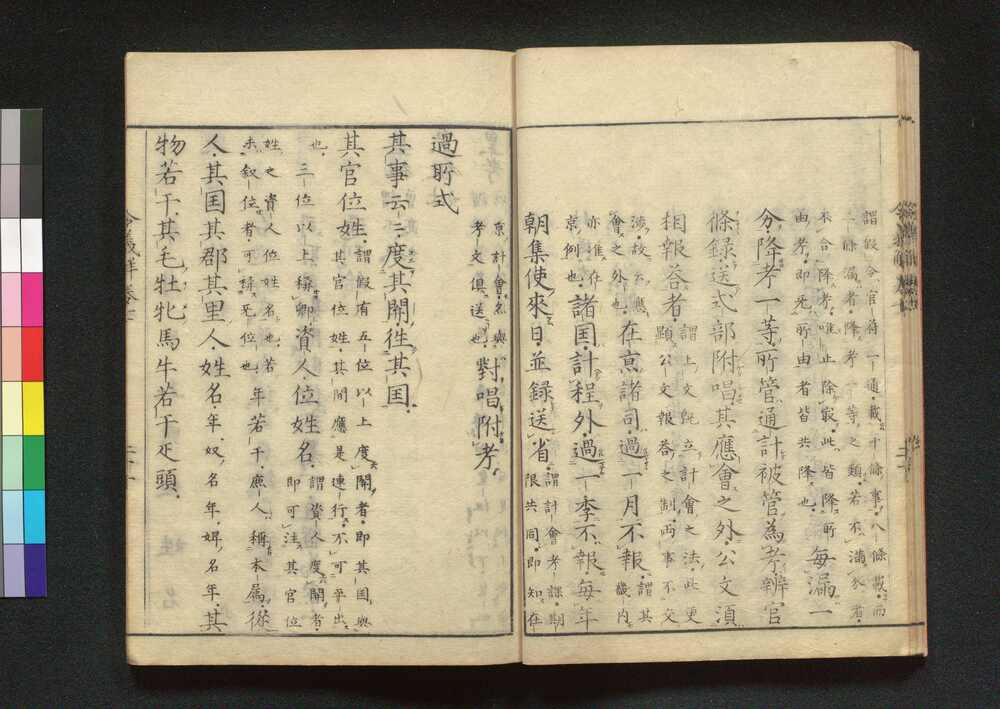 謂假令官符一通載十條事八條載而
二條漏者降考一等之類若不滿分者
不合降考唯止除㝡此皆降所
由考即死所由者皆共降也每漏一
分降考一等所管通計被管為考辨官
條録送式部附唱其應會之外公文須
相報答者謂上文既立計會之法此更
顯公文報答之制両事不交
渉故云應
會之外也在亰諸司過一月不報謂其
畿内
亦准在
亰例也諸国計程外過一季不報每年
朝集使來日並録送省謂計會考課期
限共同即知在
亰計會名與
考文俱送也對唱附考
過所式
其事云云度其関徃其国
其官位姓謂假有五位以上度関者即其国與
其官位姓其関應是連行不可平出
也三位以上稱卿資人位姓名謂資人度関者
即可注其官位
姓之資人位姓名也若
未叙位者可稱无位也年若干庶人稱本属從
人其国其郡其里人姓名年奴名年婢名年其
物若干其毛牡牝馬牛若干疋頭